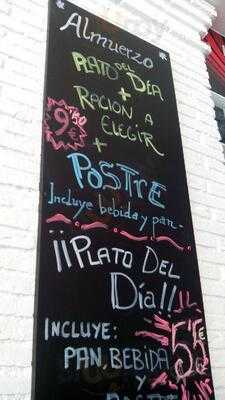 Almuerzo
PLATO DEL DÍA
+
RACION A
ELEGIR
9'50
€
+
POSTRE
Incluye bebida y pan
¡¡PLATO DEL
DÍA!!
INCLUYE:
PAN, BEBIDA
Y
POSTRE
€